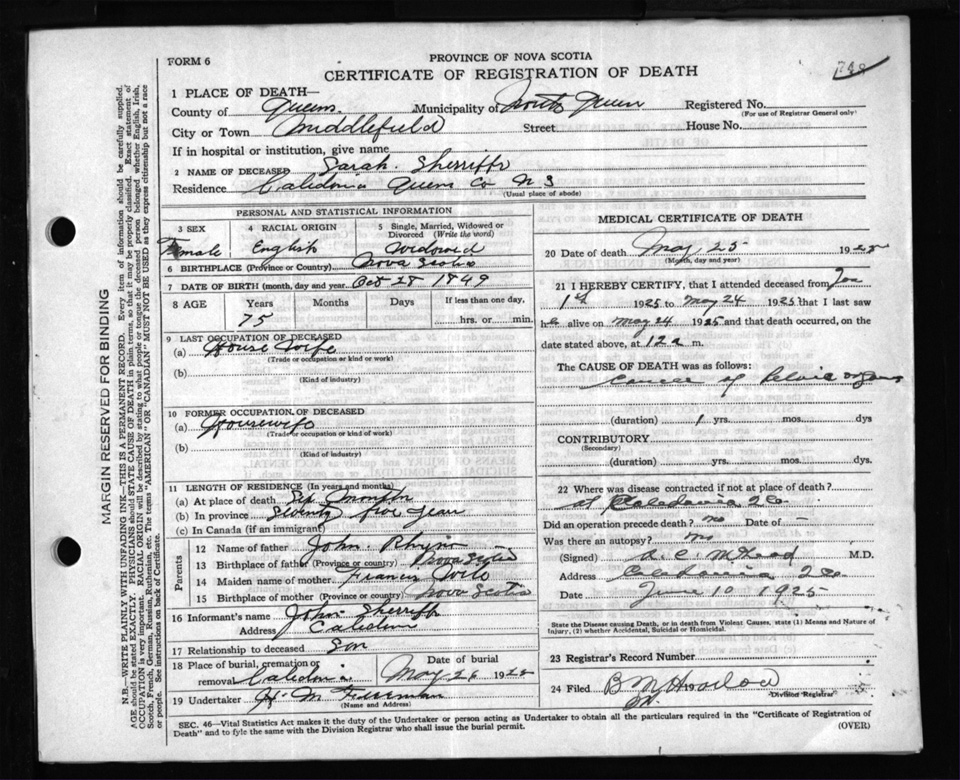 748
FORM 6
PROVINCE OF NOVA SCOTIA
CERTIFICATE OF REGISTRATION OF DEATH
1 PLACE OF DEATH—
County of Queens Municipality of North Queen Registered No.
(For use of Registrar General only)
City or Town Middlefield Street House No.
If in hospital or institution, give name
2 NAME OF DECEASED Sarah Sherriffs
Residence Calidonia Queens Co N S
(Usual place of abode)
PERSONAL AND STATISTICAL INFORMATION
3 SEX Female
4 RACIAL ORIGIN English
5 Single, Married, Widowed or Divorced (Write the word) Widowed
6 BIRTHPLACE (Province or Country) Nova Scotia
7 DATE OF BIRTH (month, day and year) Oct 28 1849
8 AGE Years Months Days If less than one day,
75 hrs. or min.
9 LAST OCCUPATION OF DECEASED
(a) House Wife
(Trade or occupation or kind of work)
(b)
(Kind of industry)
10 FORMER OCCUPATION OF DECEASED
(a) Housewife
(Trade or occupation or kind of work)
(b)
(Kind of industry)
11 LENGTH OF RESIDENCE (In years and months)
(a) At place of death Six months
(b) In province Seventy five years
(c) In Canada (if an immigrant)
Parents
12 Name of father John Rhyno
13 Birthplace of father (Province or country) Nova Scotia
14 Maiden name of mother Francis
15 Birthplace of mother (Province or country) Nova Scotia
16 Informant's name John Sherriffs
Address Caledonia
17 Relationship to deceased Son
18 Place of burial, cremation or removal Caledonia
Date of burial May 26 1925
19 Undertaker Freeman
(Name and Address)
MEDICAL CERTIFICATE OF DEATH
20 Date of death May 25 1925
(Month, day and year)
21 I HEREBY CERTIFY, that I attended deceased from Jan
1st 1925 to May 24 1925 that I last saw
h alive on May 24 1925 and that death occurred, on the
date stated above, at 12 a m.
The CAUSE OF DEATH was as follows:
Cancer of Pelvic organs
(duration) 1 yrs. mos. dys
CONTRIBUTORY
(Secondary)
(duration) yrs. mos. dys.
22 Where was disease contracted if not at place of death?
at Caledonia Q Co
Did an operation precede death? no Date of –
Was there an autopsy? no
(Signed) M.D.
Address Caledonia Q Co
Date June 10 1925
State the Disease causing Death, or in death from Violent Causes, state (1) Means and Nature of
Injury, (2) whether Accidental, Suicidal or Homicidal.
23 Registrar's Record Number
24 Filed 19
Division Registrar
SEC. 46—Vital Statistics Act makes it the duty of the Undertaker or person acting as Undertaker to obtain all the particulars required in the "Certificate of Registration of
Death" and to fyle the same with the Division Registrar who shall issue the burial permit.
(OVER)
MARGIN RESERVED FOR BINDING
N.B.—WRITE PLAINLY WITH UNFADING INK—THIS IS A PERMANENT RECORD. Every item of information should be carefully supplied.
AGE should be stated EXACTLY. PHYSICIANS should STATE CAUSE OF DEATH in plain terms, so that it may be properly classified. Exact statement of
OCCUPATION is very important. RACIAL ORIGIN will be described by stating to what people or tongue the deceased person belonged whether English, Irish,
Scotch, French, German, Russian, Ruthenian, etc. The terms "AMERICAN" or "CANADIAN" MUST NOT BE USED as they express citizenship but not a race
or people. See instructions on back of Certificate.